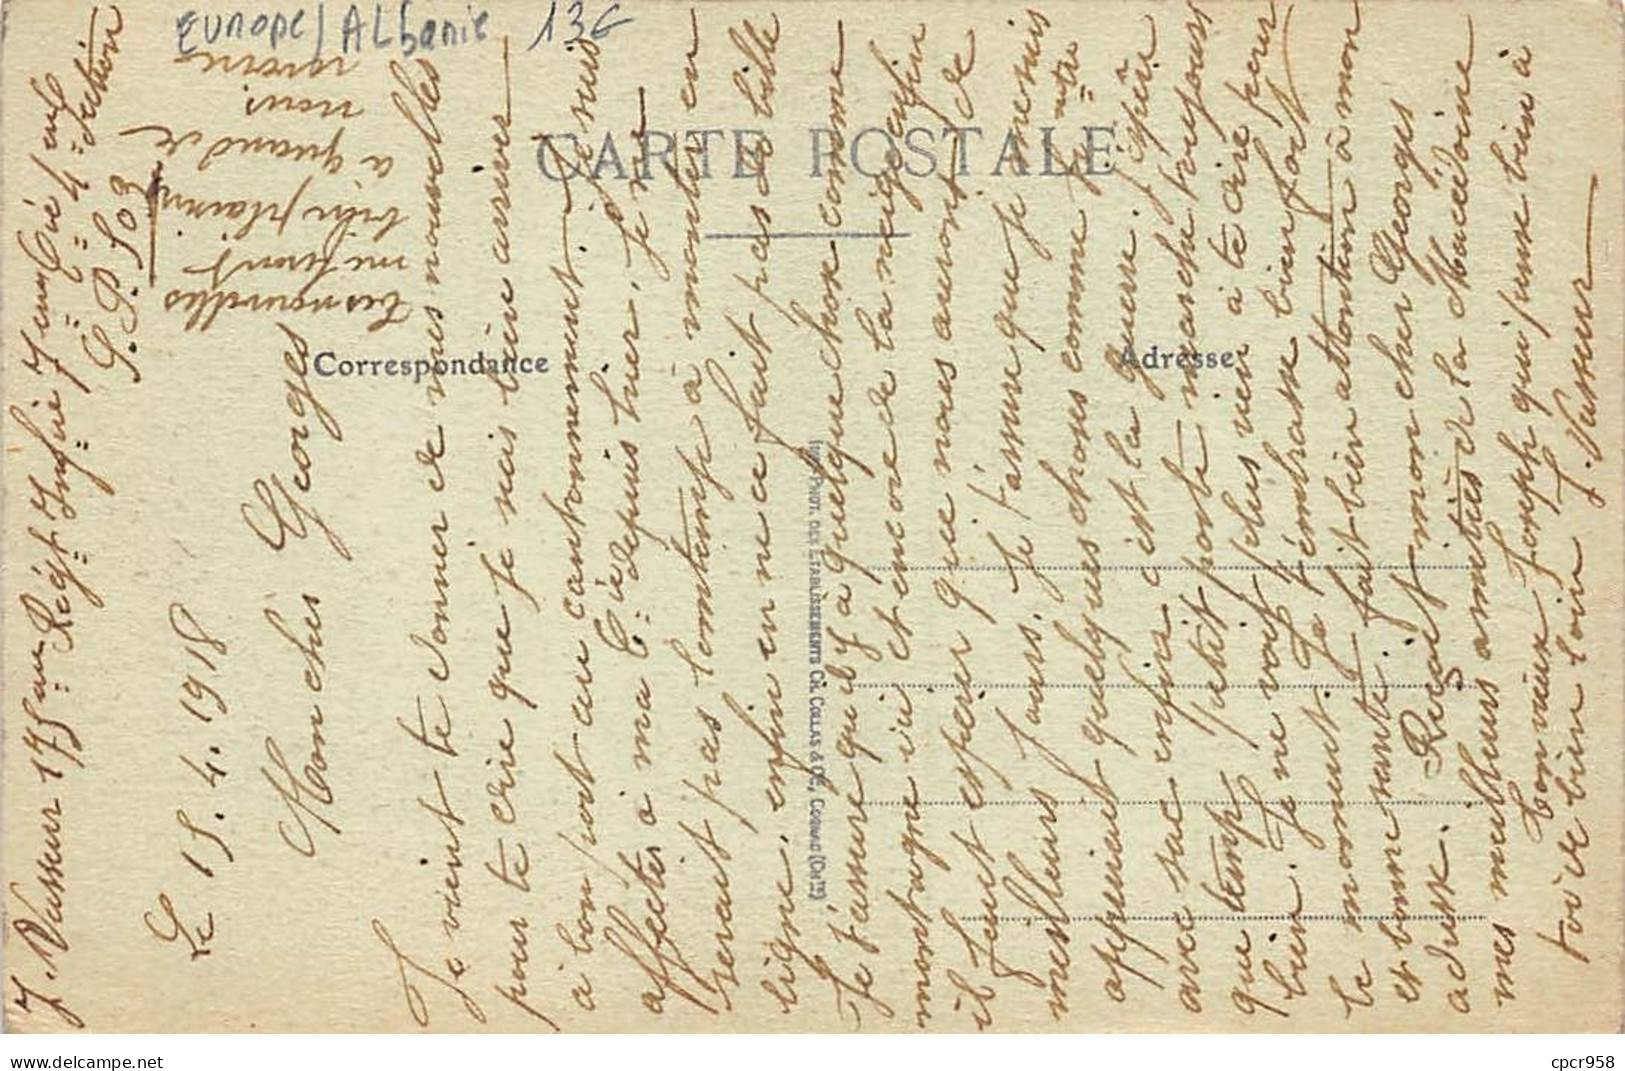 Europe/Albanie 13€
CARTE POSTALE
Correspondance
Adresse
Imp. Phot. des Etablissements Ch. Collas & Cie, Cognac (Chte)
J. Vasseur 175eme Régt Infie 7eme Cie 1ere
4e Section
S. P. 503
Le 15.4.1918
Mon cher Georges
Je vient te donner de mes nouvelles
pour te dire que je suis bien arriver
à bon port au cantonnement. Je suis
affecter à ma Cie depuis hier, je ne
serait pas lomtemps à monter en
ligne, enfin en ne ce fait pas de bille
Je t'assure qu'il y a quelque chose comme
montagne ici et encore de la neige enfin
il faut espérer que nous auront de
meilleurs jours. Je t'assure que je me suis
appuient quelques chose comme
avec sac enfin c'est la guerre. J'espère
que temp petit porte marche toujours
bien. Je ne voit plus rien à te dire pour
le moment. Je t'embrasse bien fort
fait bien attention à mon
et bonne sante. mon cher Georges
adresse. Reçoit
mes meilleurs amitiés de la Macédoine
Ton vieux Joseph qui pense bien à
toi de bien loin J. Vasseur
Tes nouvelles
me feront
bien plaisir
à quand de
nous
revoir
cpcr958